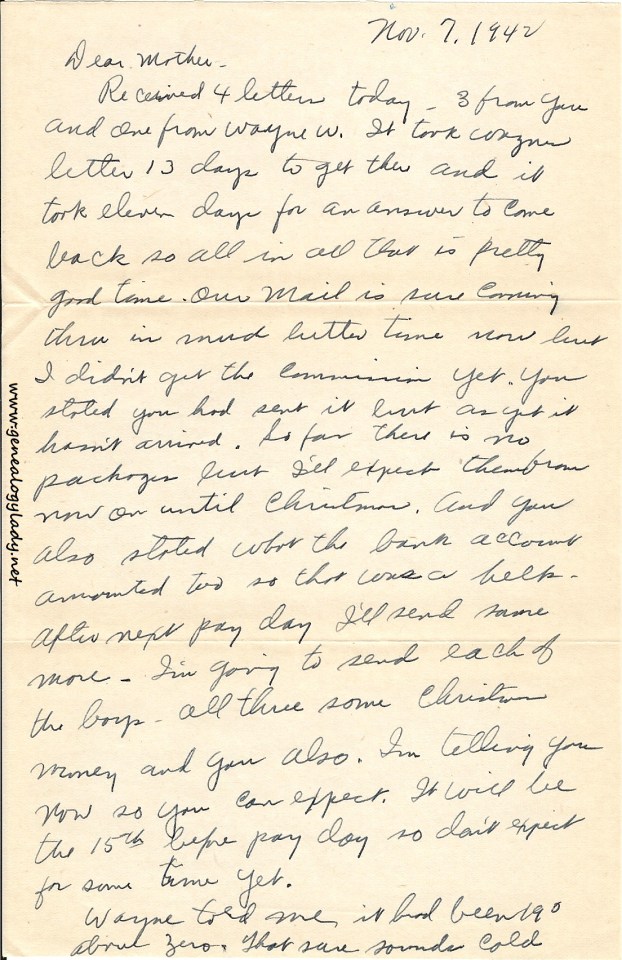 Nov. 7, 1942
Dear Mother -
Received 4 letters today - 3 from you
and one from Wayne W. It took Waynes
letter 13 days to get there and it
took eleven days for an answer to come
back so all in all that is pretty
good time. Our mail is sure coming
thru in much better time now but
I didn't get the commission yet. You
stated you had sent it but as yet it
hasn't arrived. So far there is no
packages but I'll expect them from
now on until Christmas. And you
also stated what the bank account
amounted too so that was a help.
After next pay day I'll send some
more - I'm going to send each of
the boys - all three some Christmas
money and you also. I'm telling you
now so you can expect. It will be
the 15th before pay day so don't expect
for some time yet.
Wayne told me it had been 19°
above zero. That sure sounds cold
www.genealogylady.net